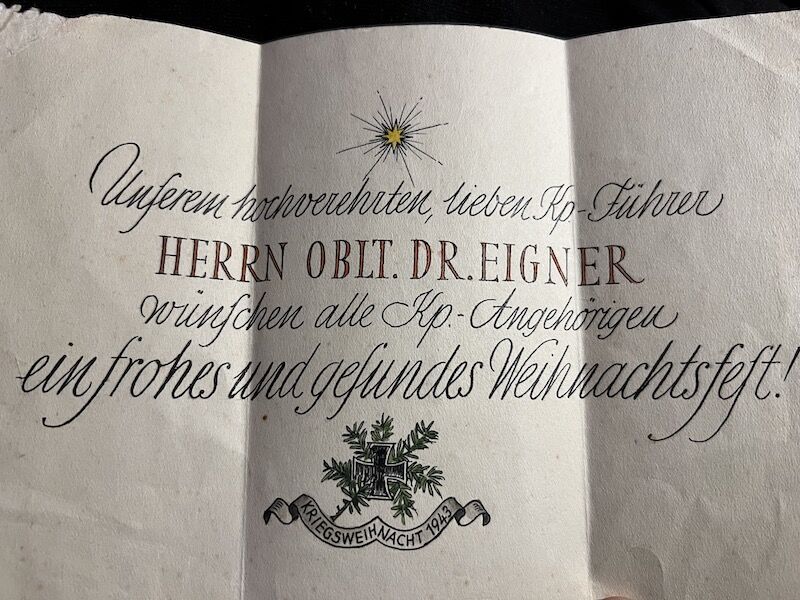 Unserem hochverehrten, lieben Kp-Führer
HERRN OBLT. DR. EIGNER
wünschen alle Kp.-Angehörigen
ein frohes und gesundes Weihnachtsfest!
KRIEGSWEIHNACHT 1943